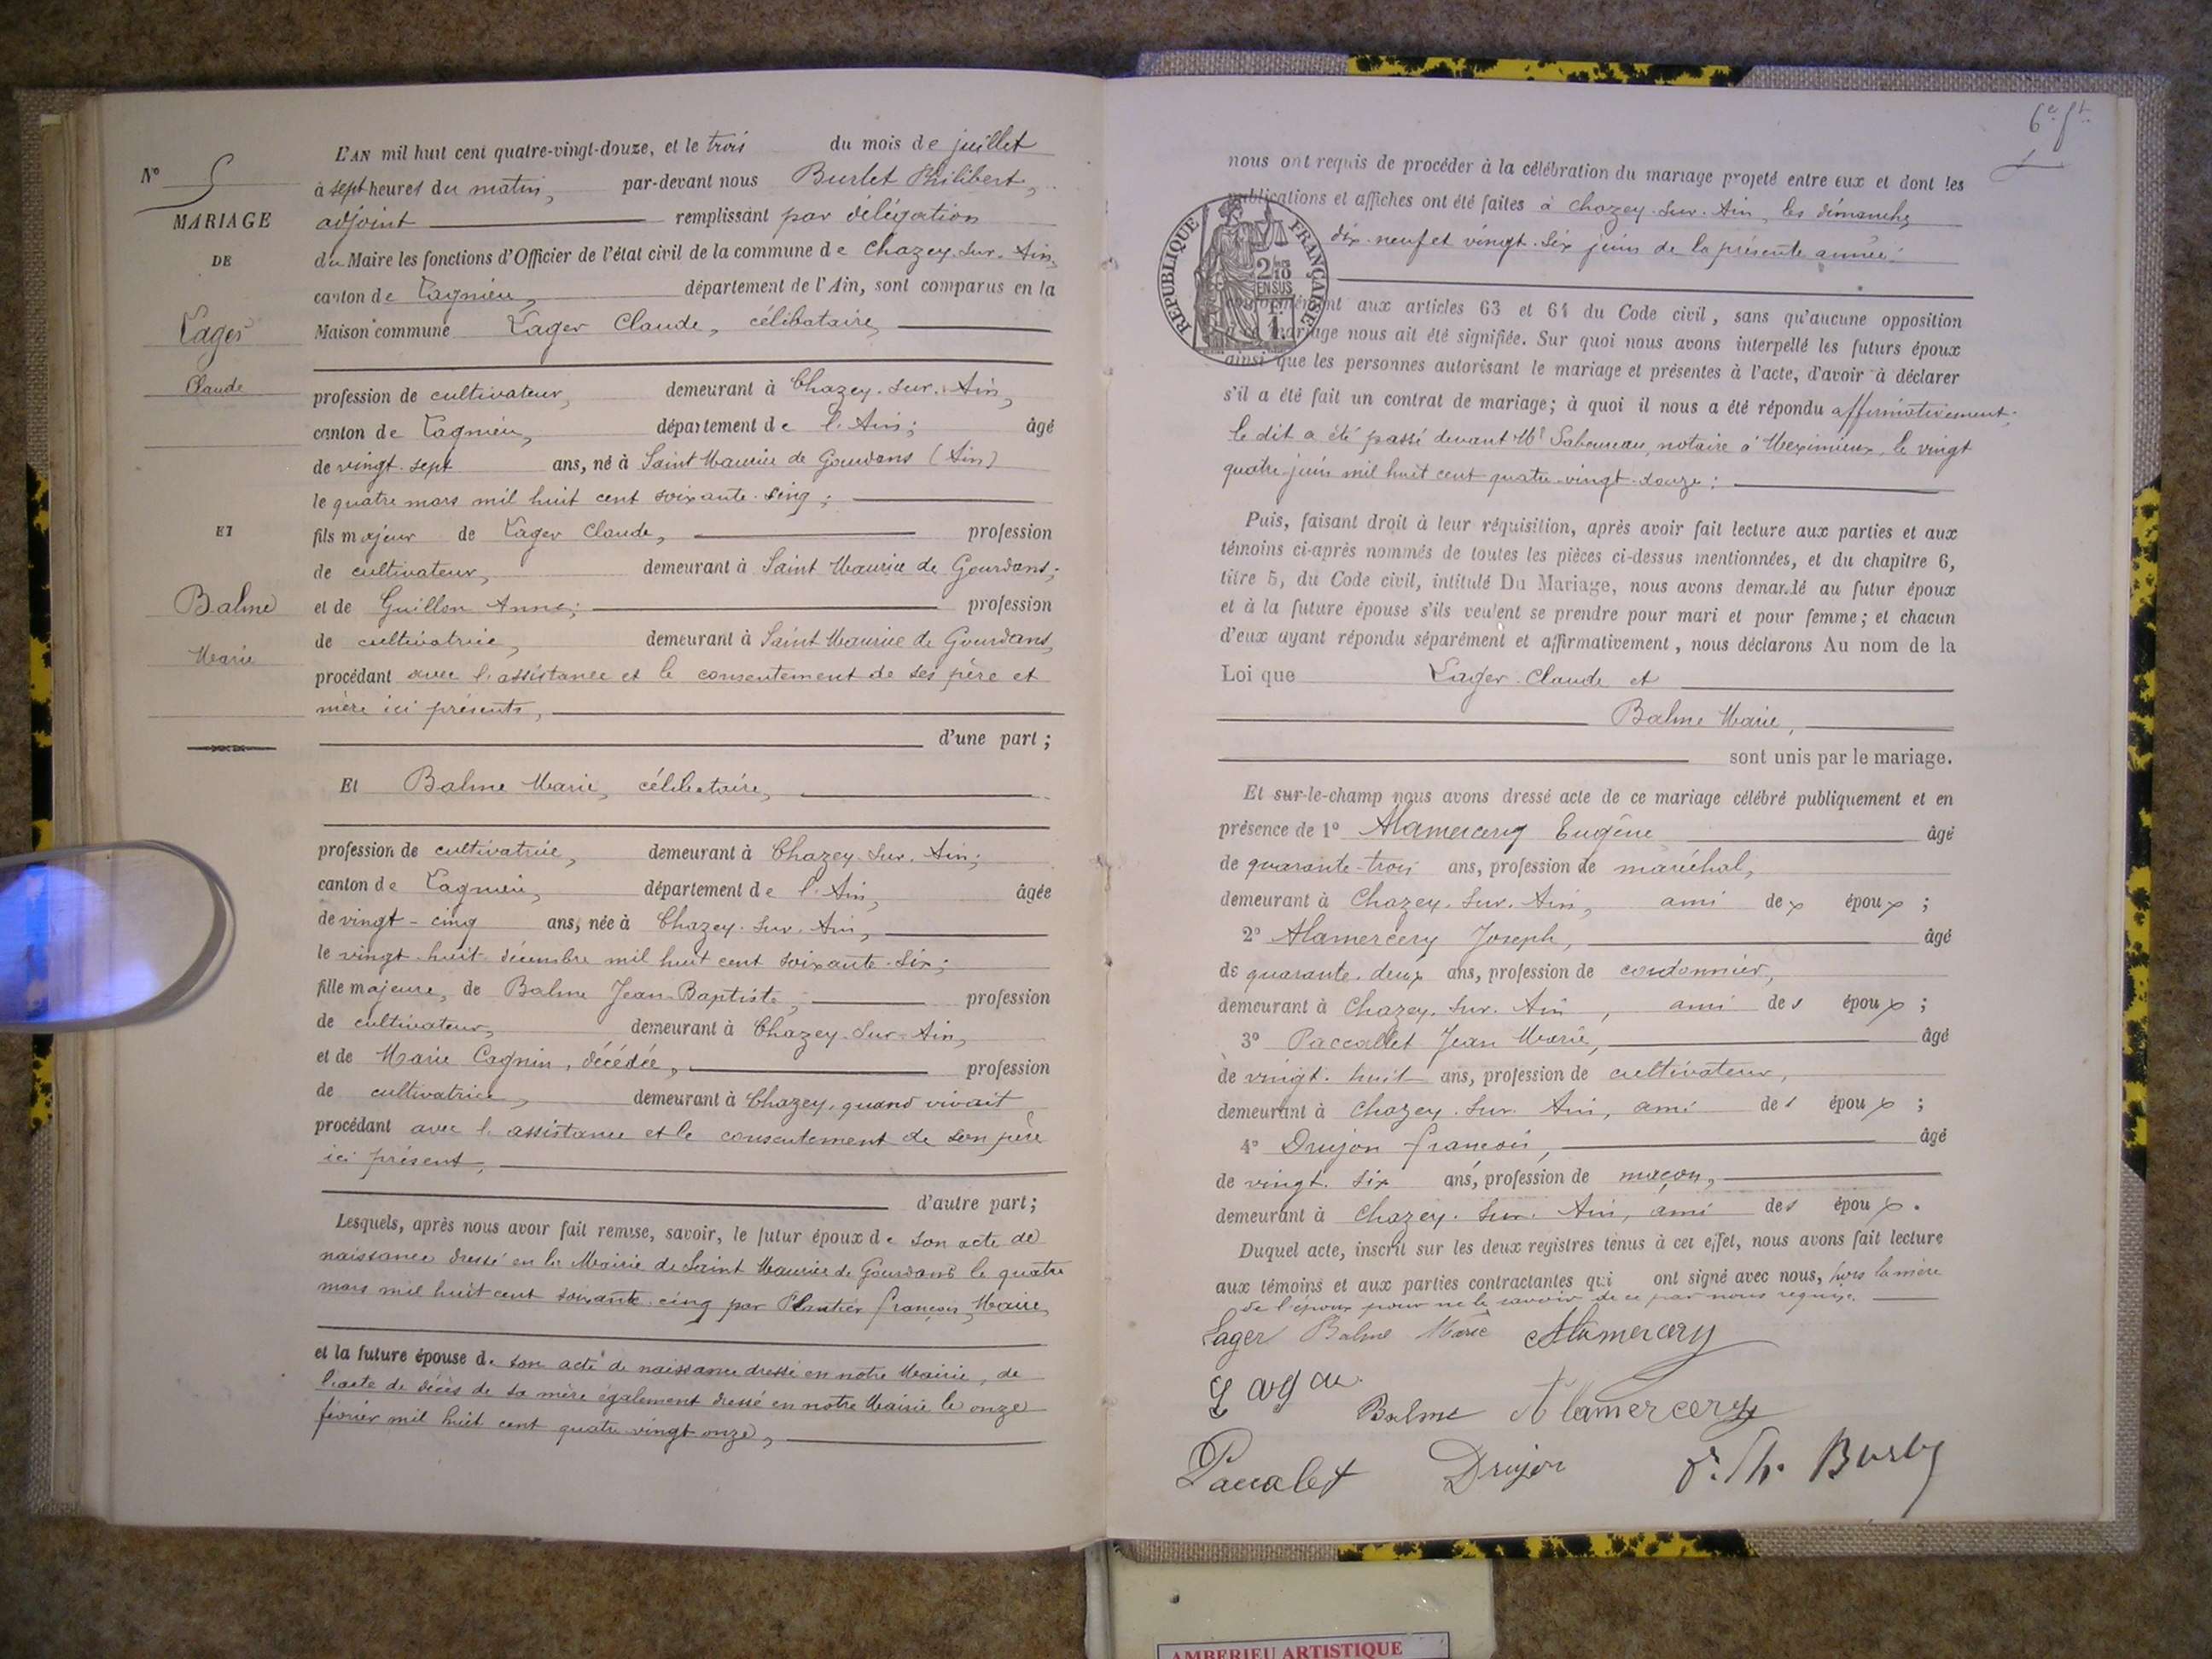 N° 5
MARIAGE
DE
Lager
Claude
ET
Balme
Marie
L'AN mil huit cent quatre-vingt-douze, et le trois du mois de juillet
à sept heures du matin, par-devant nous Burlet Philibert,
adjoint remplissant par délégation
du Maire les fonctions d'Officier de l'état civil de la commune de Chazey-sur-Ain,
canton de Lagnieu, département de l'Ain, sont comparus en la
Maison commune Lager Claude, célibataire,
profession de cultivateur, demeurant à Chazey-sur-Ain,
canton de Lagnieu, département de l'Ain; âgé
de vingt-sept ans, né à Saint Maurice de Gourdans (Ain)
le quatre mars mil huit cent soixante-cinq;
fils majeur de Lager Claude, profession
de cultivateur, demeurant à Saint Maurice de Gourdans;
et de Guillon Anne; profession
de cultivatrice, demeurant à Saint Maurice de Gourdans,
procédant avec l'assistance et le consentement de ses père et
mère ici présents,
d'une part;
Et Balme Marie, célibataire,
profession de cultivatrice, demeurant à Chazey-sur-Ain;
canton de Lagnieu, département de l'Ain, âgée
de vingt-cinq ans, née à Chazey-sur-Ain,
le vingt-huit décembre mil huit cent soixante-six;
fille majeure, de Balme Jean-Baptiste, profession
de cultivateur, demeurant à Chazey-sur-Ain,
et de Marie Cagnin, décédée, profession
de cultivatrice, demeurant à Chazey, quand vivait
procédant avec l'assistance et le consentement de son père
ici présent,
d'autre part;
Lesquels, après nous avoir fait remise, savoir, le futur époux de son acte de
naissance dressé en la Mairie de Saint Maurice de Gourdans le quatre
mars mil huit cent soixante-cinq par Plantier françois, Maire,
et la future épouse de son acte de naissance dressé en notre Mairie, de
l'acte de décès de sa mère également dressé en notre Mairie le onze
février mil huit cent quatre-vingt onze,
6e ft
nous ont requis de procéder à la célébration du mariage projeté entre eux et dont les
publications et affiches ont été faites à Chazey-sur-Ain, les dimanches
dix-neuf et vingt-six juin de la présente année:
RÉPUBLIQUE FRANÇAISE
2/10 EN SUS
conformément aux articles 63 et 64 du Code civil, sans qu'aucune opposition
à ce mariage nous ait été signifiée. Sur quoi nous avons interpellé les futurs époux
ainsi que les personnes autorisant le mariage et présentes à l'acte, d'avoir à déclarer
s'il a été fait un contrat de mariage; à quoi il nous a été répondu affirmativement;
le dit a été passé devant Me notaire à Meximieux, le vingt
quatre juin mil huit cent quatre-vingt-douze:
Puis, faisant droit à leur réquisition, après avoir fait lecture aux parties et aux
témoins ci-après nommés de toutes les pièces ci-dessus mentionnées, et du chapitre 6,
titre 5, du Code civil, intitulé Du Mariage, nous avons demandé au futur époux
et à la future épouse s'ils veulent se prendre pour mari et pour femme; et chacun
d'eux ayant répondu séparément et affirmativement, nous déclarons Au nom de la
Loi que Lager Claude et
Balme Marie,
sont unis par le mariage.
Et sur-le-champ nous avons dressé acte de ce mariage célébré publiquement et en
présence de 1° Alamercery Eugène âgé
de quarante-trois ans, profession de maréchal,
demeurant à Chazey-sur-Ain, ami des époux;
2° Alamercery Joseph, âgé
de quarante-deux ans, profession de cordonnier,
demeurant à Chazey-sur-Ain, ami des époux;
3° Paccallet Jean Marie, âgé
de vingt-huit ans, profession de cultivateur,
demeurant à Chazey-sur-Ain, ami des époux;
4° Drujon françois, âgé
de vingt-six ans, profession de maçon,
demeurant à Chazey-sur-Ain, ami des époux.
Duquel acte, inscrit sur les deux registres tenus à cet effet, nous avons fait lecture
aux témoins et aux parties contractantes qui ont signé avec nous, hors la mère
de l'époux pour ne le savoir de ce par nous requise.
Lager Balme Marie Alamercery
Balme Alamercery
Pacalet Drujon
AMBERIEU ARTISTIQUE